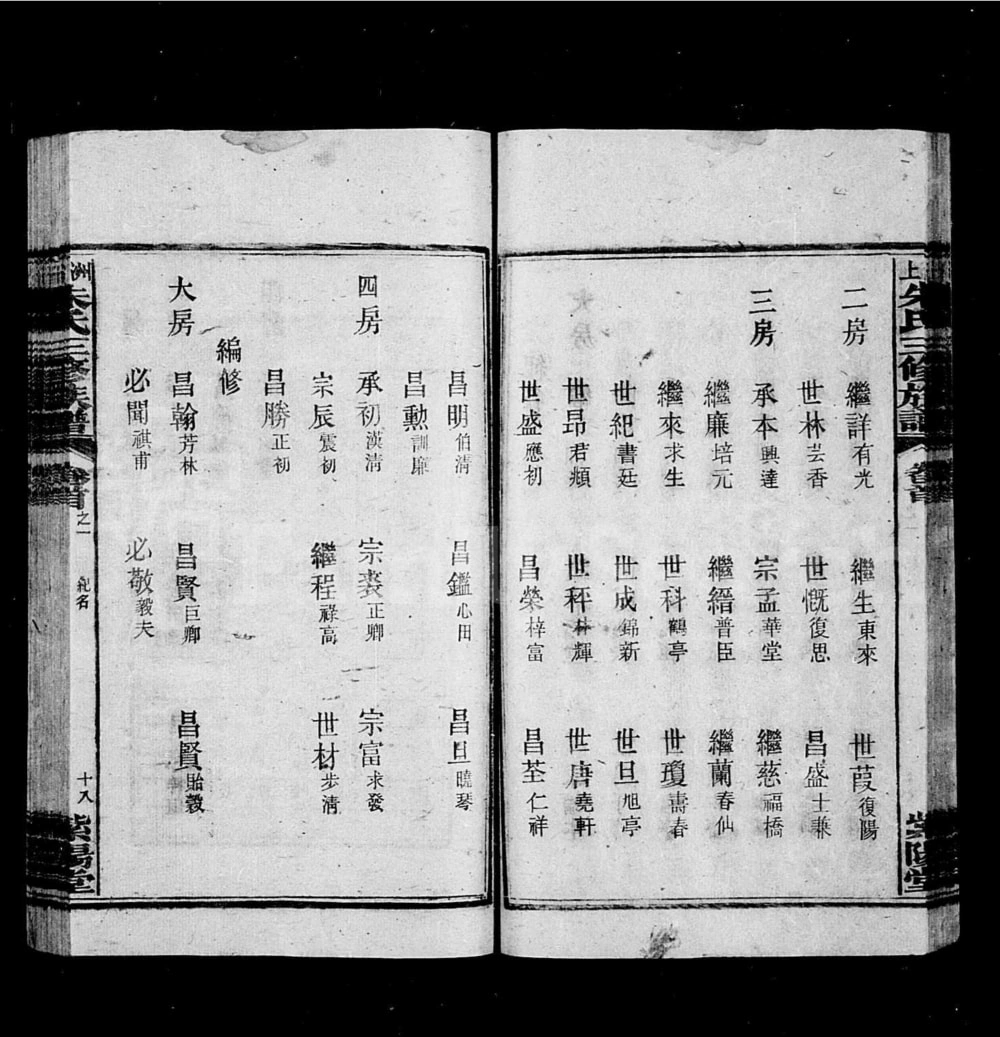 上 朱氏三修族譜 卷首 紫陽堂
二房
繼詳有光 繼生東來 世葭復陽
世林芸香 世慨復思 昌盛士兼
三房
承本興達 宗孟華堂 繼慈福橋
繼廉培元 繼縉普臣 繼蘭春仙
繼來求生 世科鶴亭 世瓊壽春
世紀書廷 世成錦新 世旦旭亭
世昂君頻 世秤林輝 世唐堯軒
世盛應初 昌榮梓富 昌荃仁祥
昌明伯清 昌鑑心田 昌旦曉琴
昌勳訓廉
四房
承初漢清 宗裘正卿 宗富求發
宗辰震初 繼程祿高 世材步清
昌勝正初
編修
大房
昌翰芳林 昌賢巨卿 昌賢貽穀
必聞祺甫 必敬毅夫
洲 朱氏三修族譜 卷首之一 紀名 十八 紫陽堂